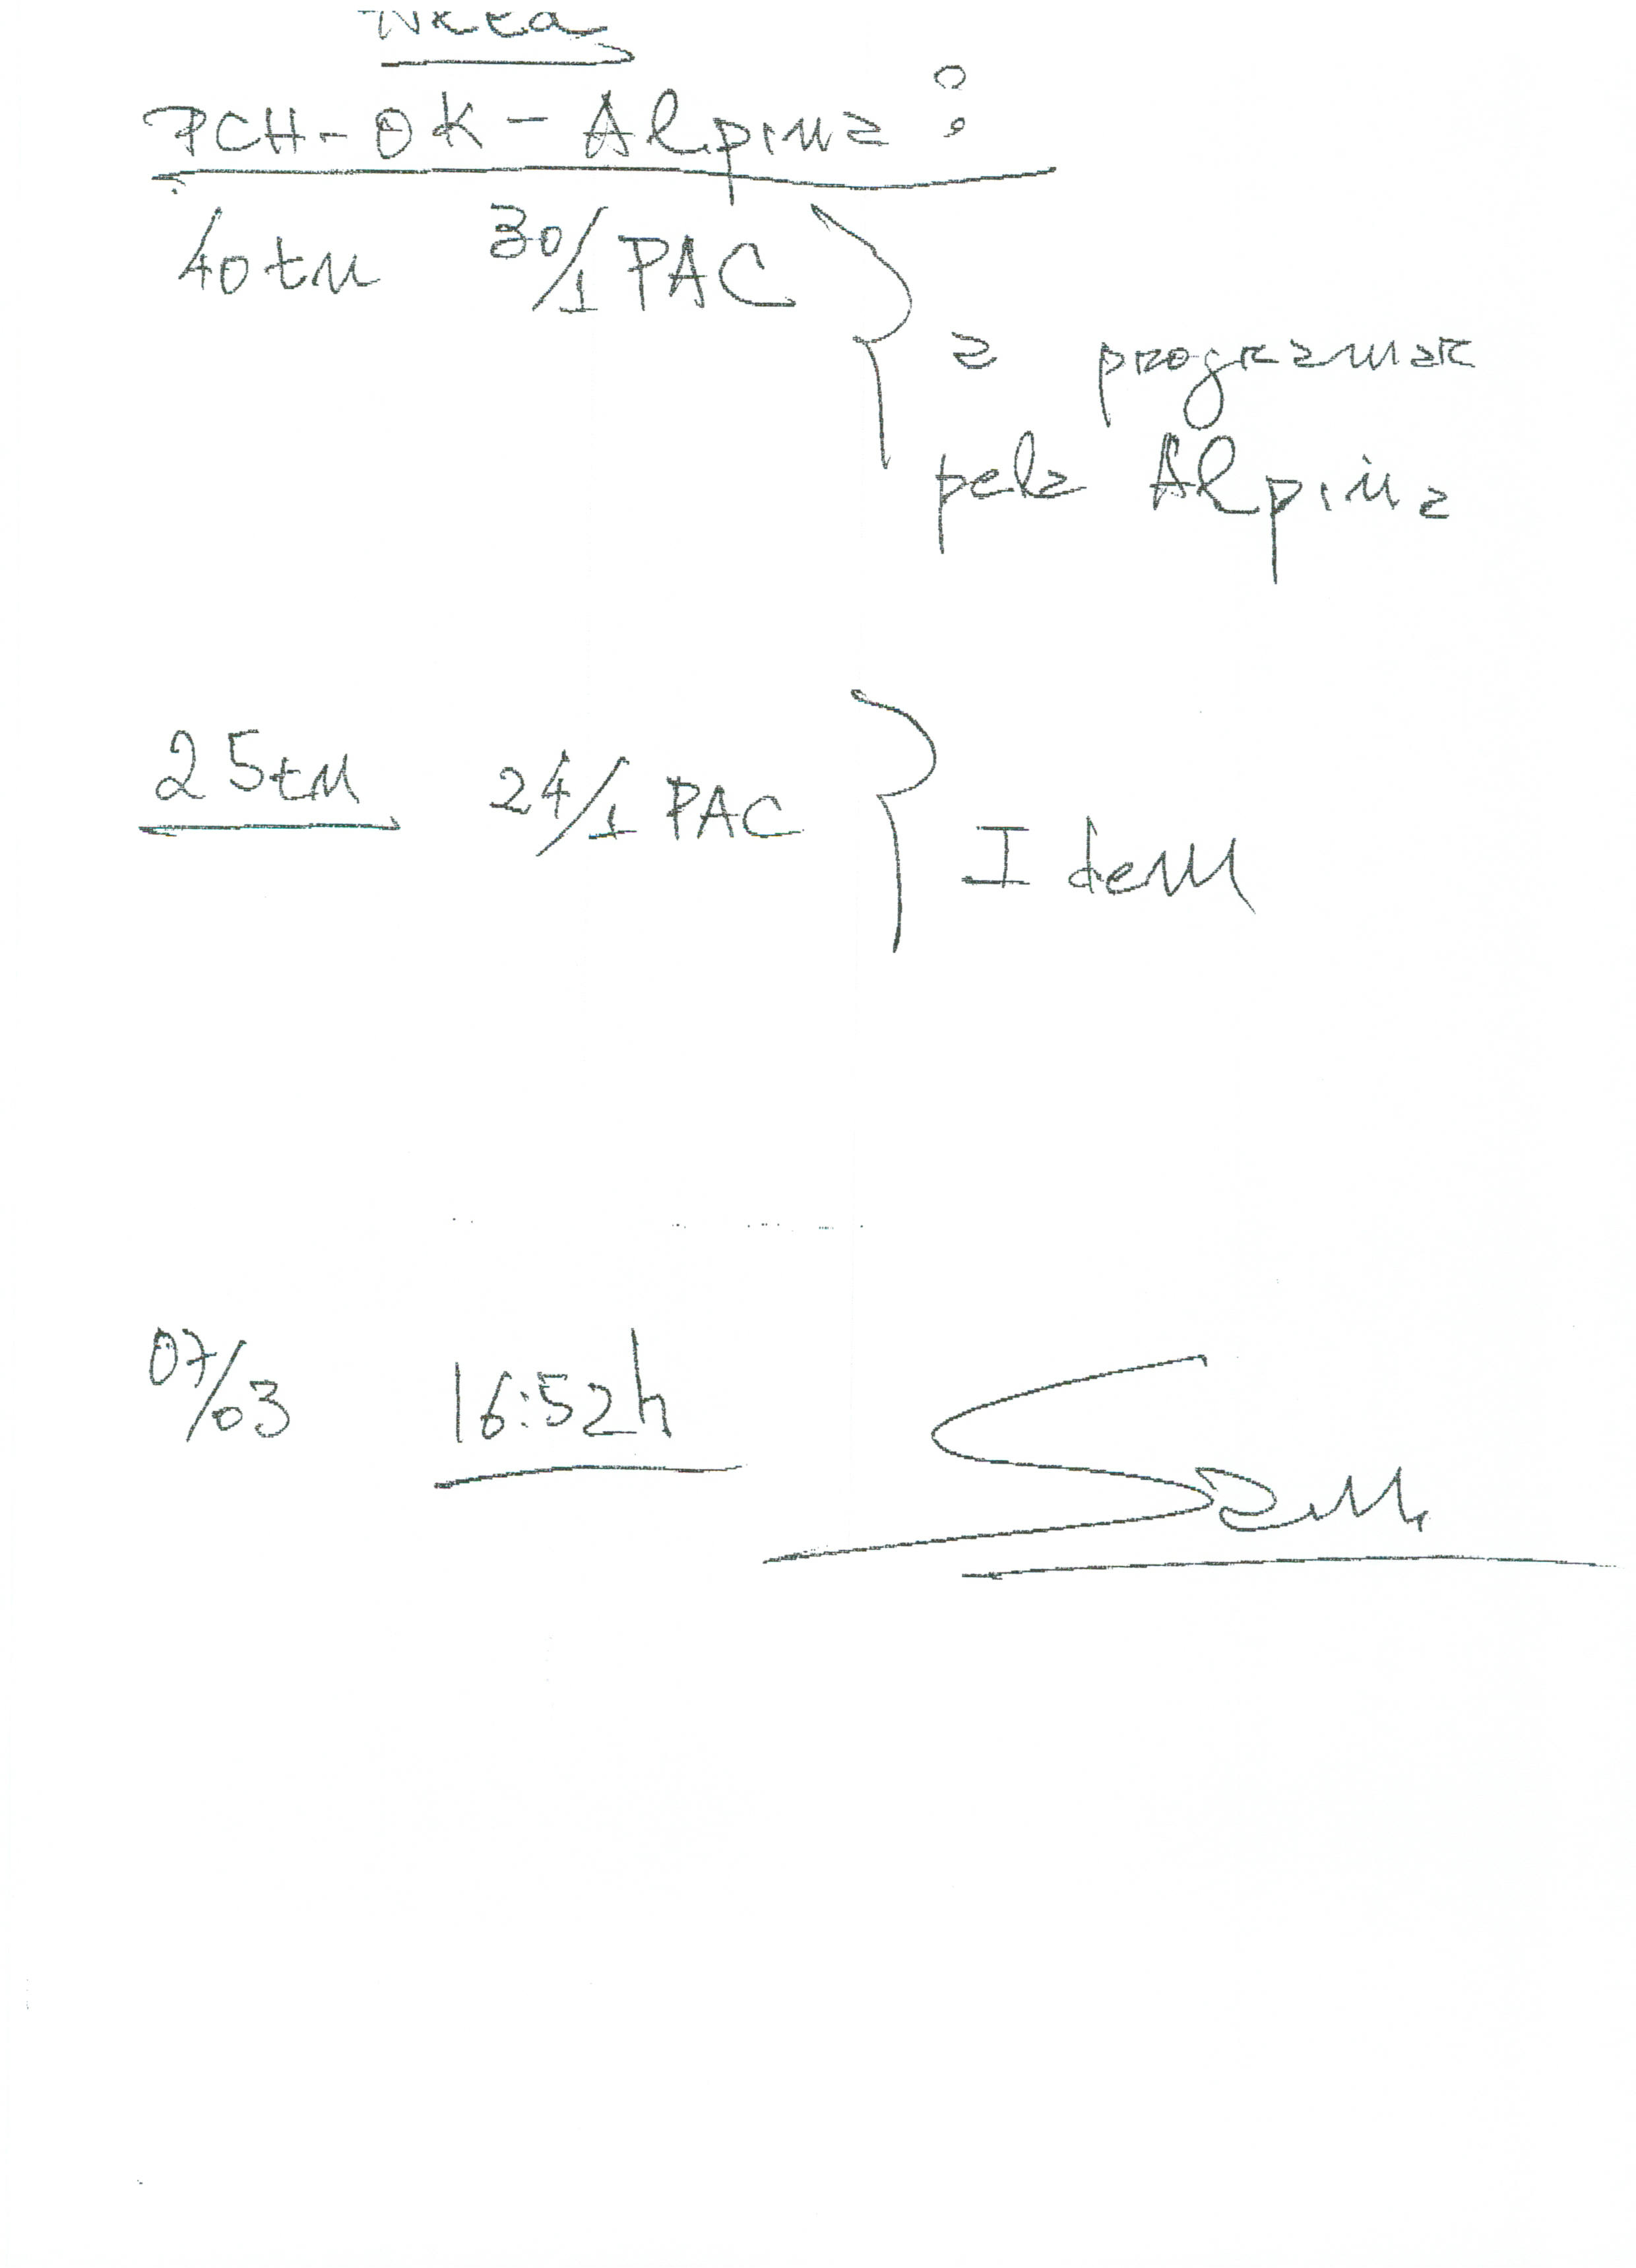 PCH-OK-Alpina:
40tn 30/1 PAC
a programar
pela Alpina
25tn 24/1 PAC
Idem
07/03 16:52h